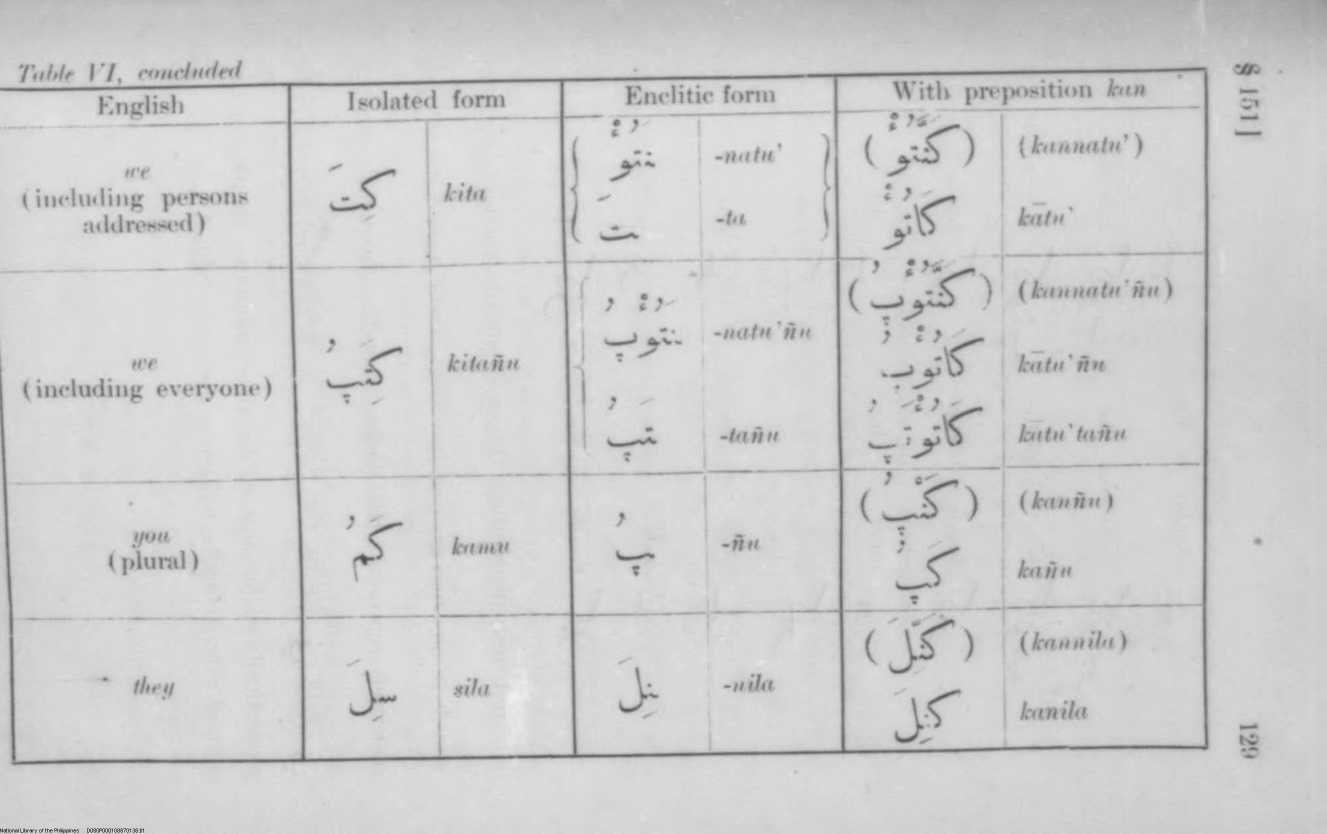 Table VI, concluded
English Isolated form Enclitic form With preposition kan
we
(including persons
addressed)
كِتَ kita
-natu’
-ta
(kannatu’)
kātu’
we
(including everyone)
kitañu
-natu’ñu
-tañu
(kannatu’ñu)
kātu’ñu
kātu’tañu
you
(plural)
كَمُ kamu
-ñu
(kanñu)
kañu
they
سِلَ sila
نِلَ -nila
(kannila)
kanila
§ 151]
129
National Library of the Philippines